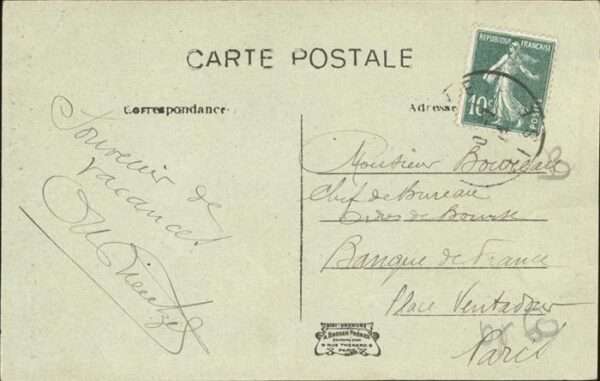 CARTE POSTALE
Correspondance
Adresse
REPUBLIQUE FRANÇAISE
10
POSTES
Souvenir de
vacances
Monsieur
Chef de Bureau
de Bourse
Banque de France
Place Ventadour
Paris
PARIS